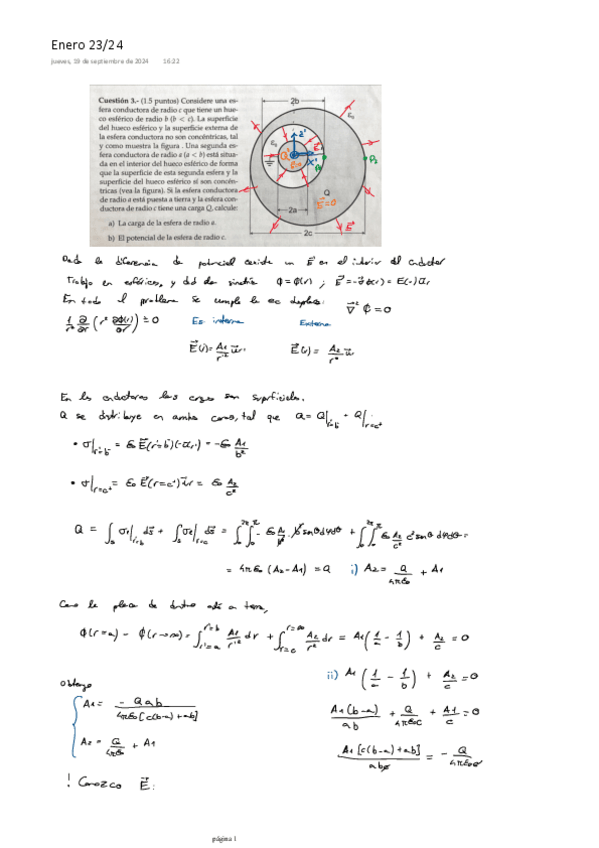 Enero 23/24
jueves, 19 de septiembre de 2024 16:22
Cuestión 3.- (1.5 puntos) Considere una es-
fera conductora de radio c que tiene un hue-
co esférico de radio b (b < c). La superficie
del hueco esférico y la superficie externa de
la esfera conductora no son concéntricas, tal
y como muestra la figura . Una segunda es-
fera conductora de radio a (a < b) está situa-
da en el interior del hueco esférico de forma
que la superficie de esta segunda esfera y la
superficie del hueco esférico sí son concén-
tricas (vea la figura). Si la esfera conductora
de radio a está puesta a tierra y la esfera con-
ductora de radio c tiene una carga Q, calcule:
a) La carga de la esfera de radio a.
b) El potencial de la esfera de radio c.
2b
ε₀
ε₀
z'
x'
P₂
Q
E⃗=0
2a
2c
E⃗
Dada la diferencia de potencial existe un E⃗ en el interior del conductor
Trabajo en esféricas, y dad la simetría Φ=Φ(r) ; E⃗=-∇Φ(r) = E(r) u⃗r
En todo el problema se cumple la ec de Laplace: ∇²Φ=0
1/r² ∂/∂r (r² ∂Φ(r)/∂r) = 0 Es interna Externa
E⃗(r')= A₁/r'² u⃗r' E⃗(r) = A₂/r² u⃗r
En los conductores las cargas son superficiales.
Q se distribuye en ambas caras, tal que Q = Q|r'=b + Q|r=c⁺
• σ|r'=b⁻ = ε₀ E⃗(r'=b)(-u⃗r') = -ε₀ A₁/b²
• σ|r=c⁺ = ε₀ E⃗(r=c⁺) u⃗r = ε₀ A₂/c²
Q = ∫s σ|r'=b ds⃗ + ∫s σ|r=c ds⃗ = ∫₀^2π ∫₀^π -ε₀ A₁/b² · b² senθ dφdθ + ∫₀^2π ∫₀^π ε₀ A₂/c² c² senθ dφdθ =
= 4πε₀ (A₂-A₁) = Q i) A₂ = Q/4πε₀ + A₁
Como la placa de dentro está a tierra,
Φ(r=a) - Φ(r→∞) = ∫r'=a^r'=b A₁/r'² dr + ∫r=c^r=∞ A₂/r² dr = A₁(1/a - 1/b) + A₂/c = 0
ii) A₁ (1/a - 1/b) + A₂/c = 0
Obtengo
A₁ = -Qab/4πε₀[c(b-a)+ab]
A₁(b-a)/ab + Q/4πε₀c + A₁/c = 0
A₂ = Q/4πε₀ + A₁
A₁[c(b-a)+ab]/abc = - Q/4πε₀c
! Conozco E⃗:
página 1